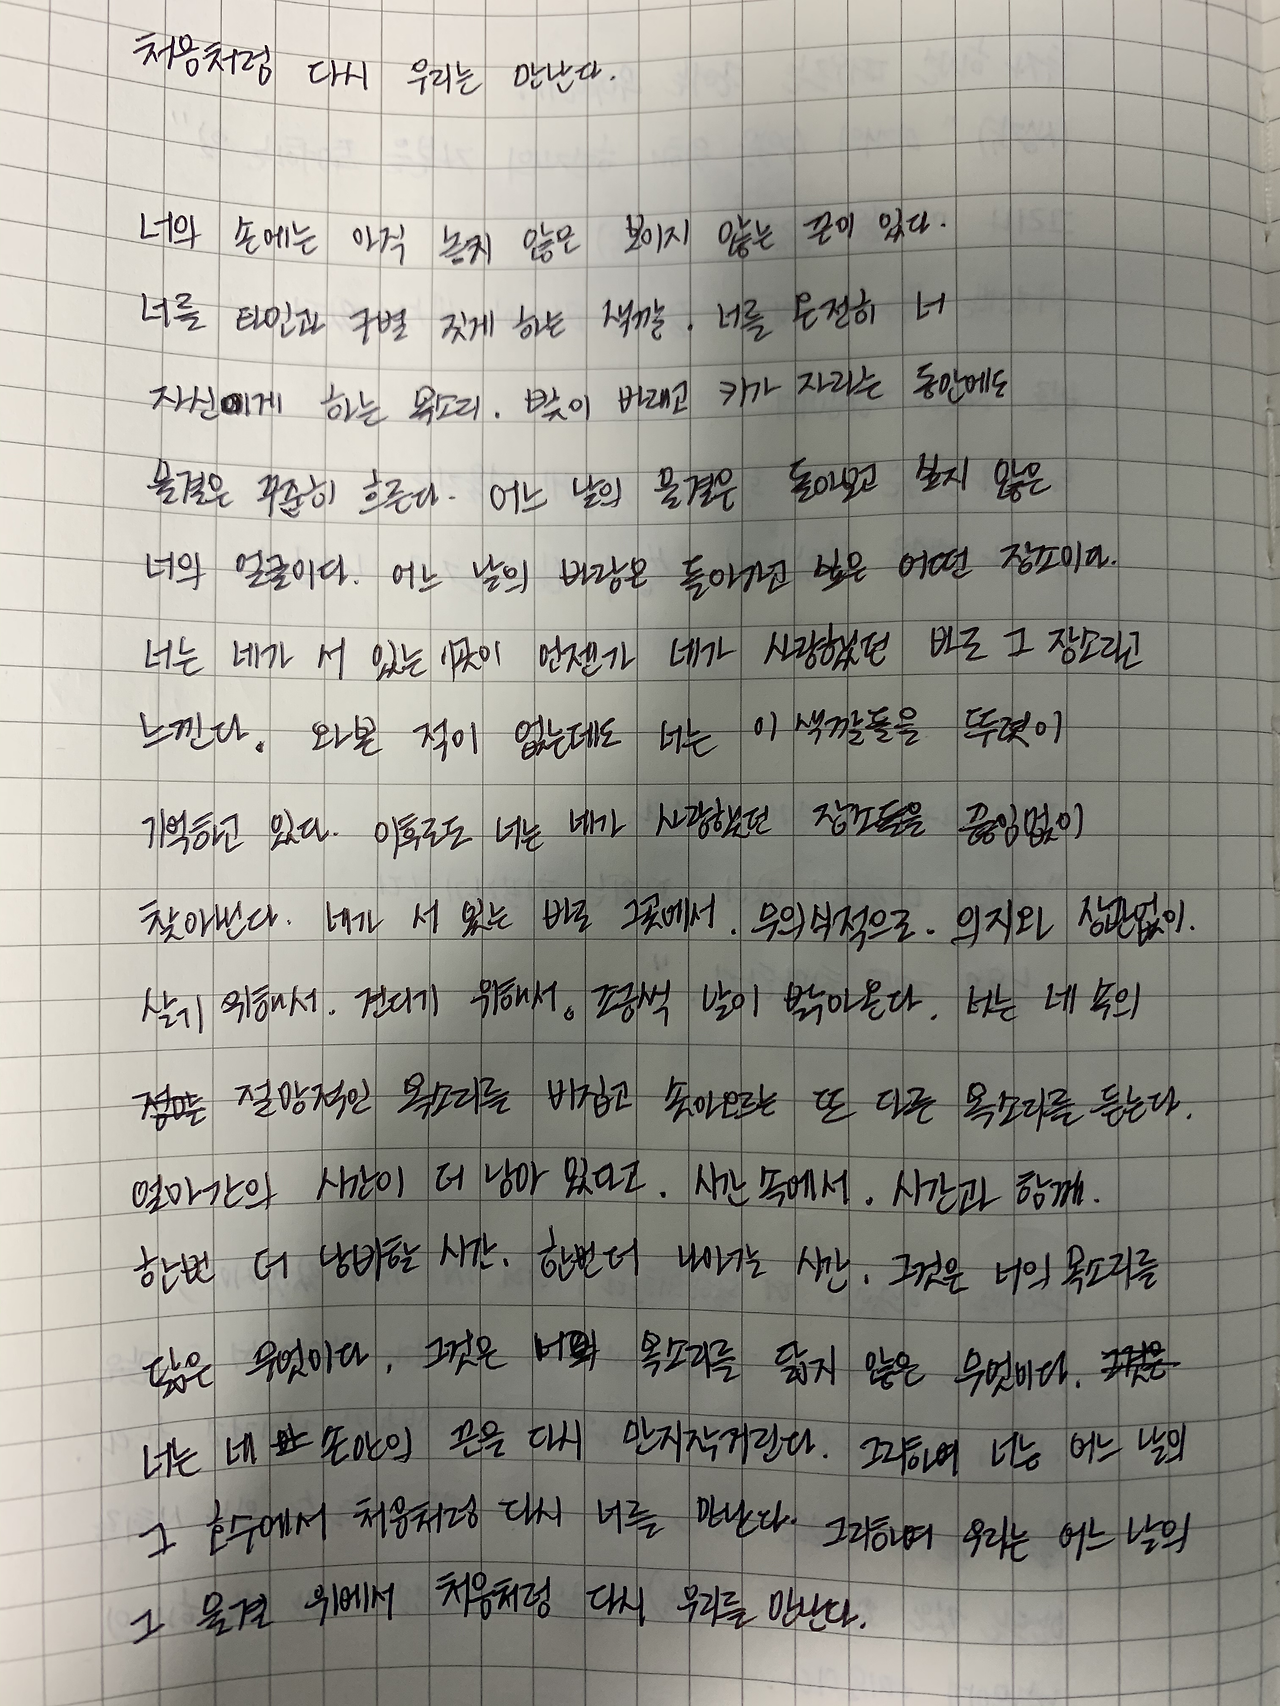 처음처럼 다시 우리는 만난다.
너의 손에는 아직 놓지 않은 보이지 않는 끈이 있다.
너를 타인과 구별 짓게 하는 색깔. 너를 온전히 너
자신이게 하는 목소리. 빛이 바래고 키가 자라는 동안에도
물결은 꾸준히 흐른다. 어느 날의 물결은 돌아보고 보지 않은
너의 얼굴이다. 어느 날의 바람은 돌아가고 싶은 어떤 장소이다.
너는 네가 서 있는 곳이 언젠가 네가 사랑했던 바로 그 장소라고
느낀다. 와본 적이 없는데도 너는 이 색깔들을 뚜렷이
기억하고 있다. 이후로도 너는 네가 사랑했던 장소들을 끊임없이
찾아낸다. 네가 서 있는 바로 그곳에서. 무의식적으로. 의지와 상관없이.
살기 위해서. 견디기 위해서. 조금씩 날이 밝아온다. 너는 네 속의
절망적인 목소리를 비집고 솟아오르는 또 다른 목소리를 듣는다.
얼마간의 시간이 더 남아 있다고. 시간 속에서. 시간과 함께.
한번 더 낭비할 시간. 한번 더 나아가는 시간. 그것은 너의 목소리를
닮은 무엇이다. 그것은 너의 목소리를 닮지 않은 무엇이다. 그것은
너는 네 손안의 끈을 다시 만지작거린다. 그리하여 너는 어느 날의
그 호수에서 처음처럼 다시 너를 만난다. 그리하여 우리는 어느 날의
그 물결 위에서 처음처럼 다시 우리를 만난다.